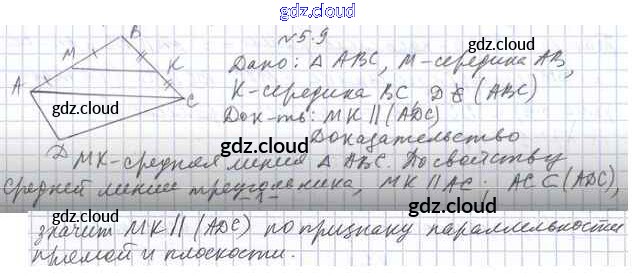 gdz.cloud
№5.9
B
M
K
A
C
D
Дано: △ ABC, M-середина AB,
K-середина BC, D∉(ABC)
Док-ть: MK∥(ADC)
Доказательство
MK-средняя линия △ ABC. По свойству
средней линии треугольника, MK∥AC, AC⊂(ADC),
значит MK∥(ADC) по признаку параллельности
прямой и плоскости.
gdz.cloud
gdz.cloud
gdz.cloud
gdz.cloud
gdz.cloud
gdz.cloud
gdz.cloud
gdz.cloud
gdz.cloud
gdz.cloud